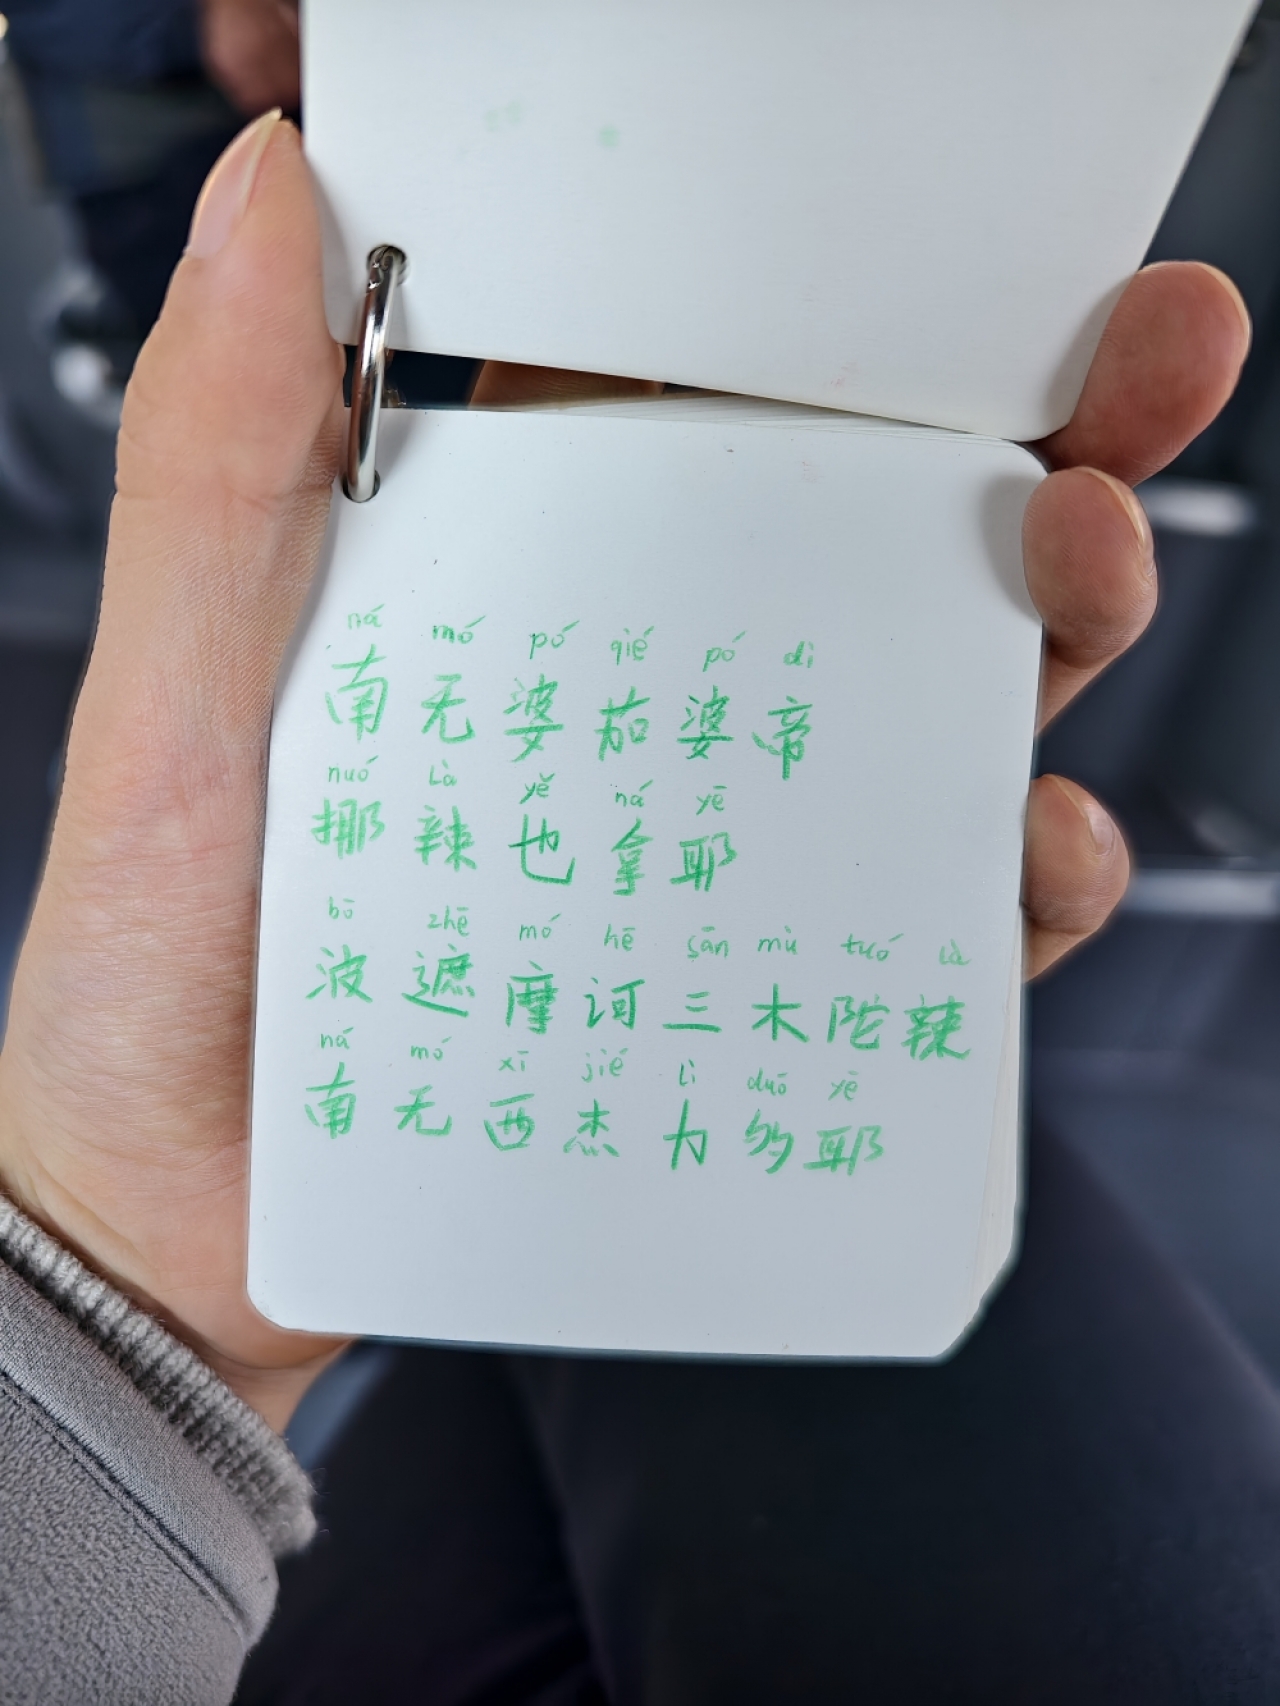 ná mó pó qié pó dì
南无婆茄婆帝
nuó là yě ná yē
挪辣也拿耶
bō zhē mó hē sān mù tuó là
波遮摩诃三木陀辣
ná mó xī jié lì duō yē
南无西杰力多耶